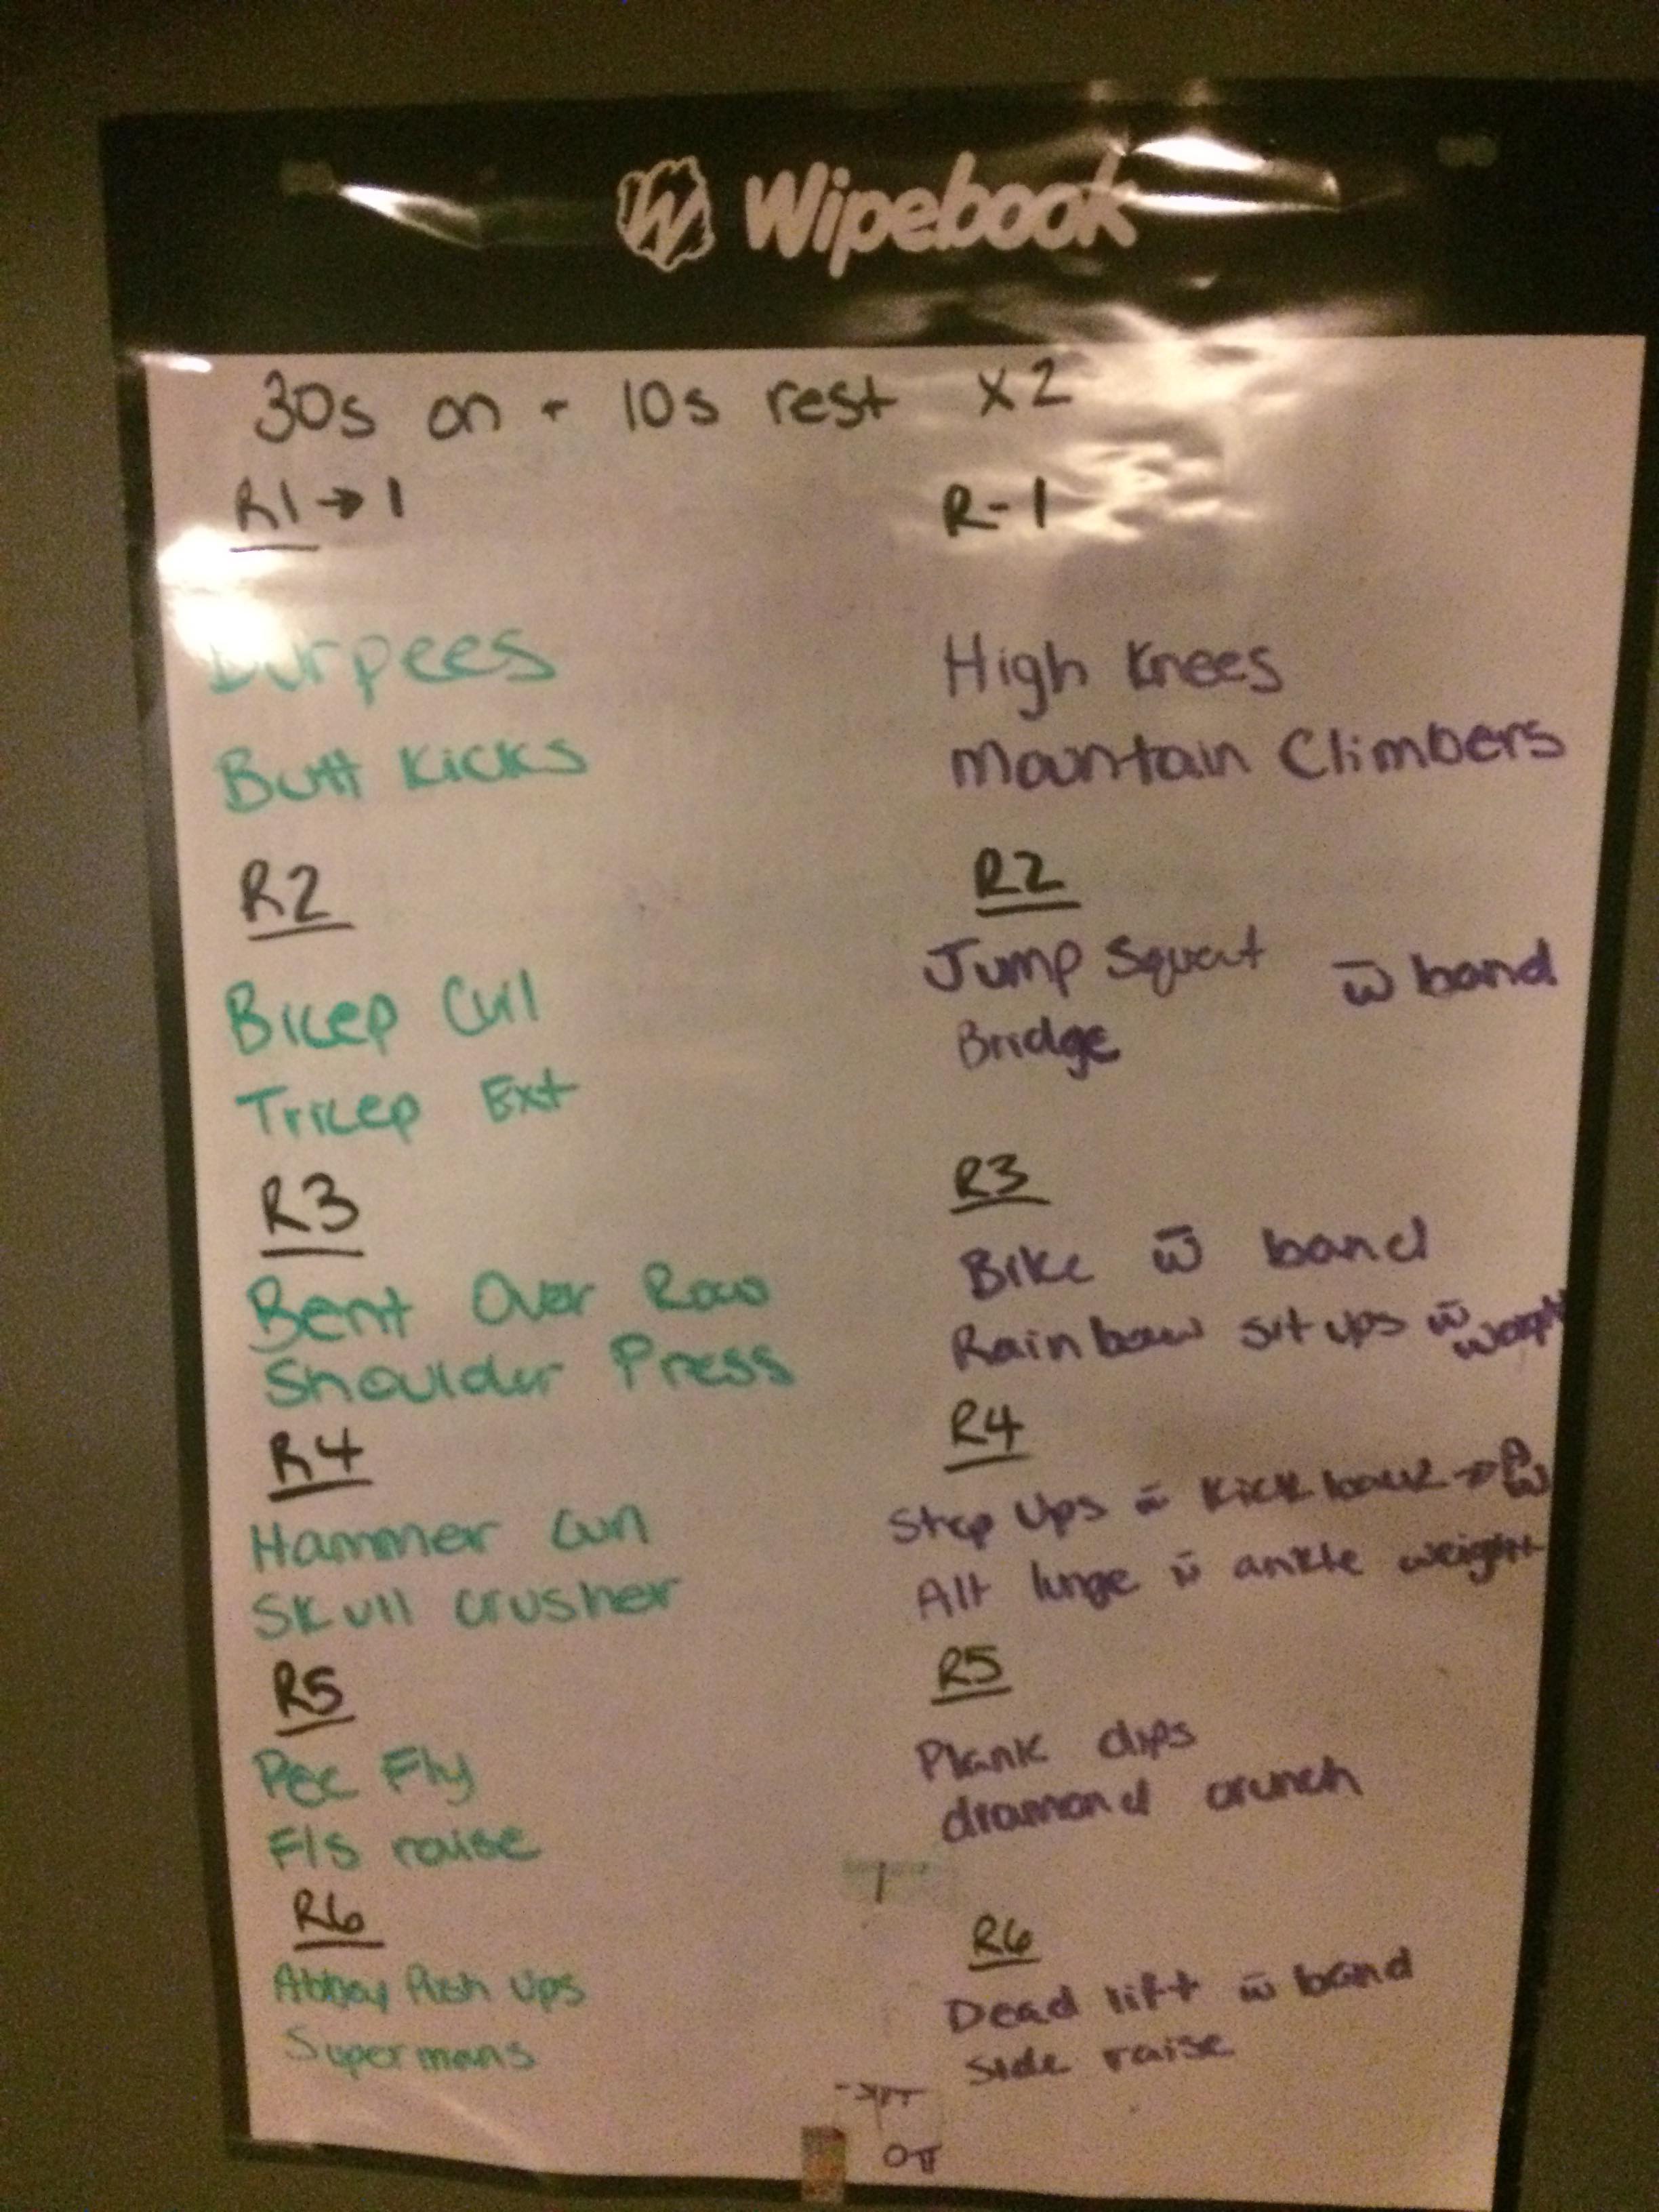 Wipebook
30s on - 10s rest x2
R1 → 1
Burpees
Butt Kicks
R2
Bicep Curl
Tricep Ext
R3
Bent Over Row
Shoulder Press
R4
Hammer Curl
Skull crusher
R5
Pec Fly
F/S raise
R6
Push Ups
Supermans
R-1
High Knees
Mountain Climbers
R2
Jump Squat w̄ band
Bridge
R3
Bike w̄ band
Rainbow sit ups w̄ weight
R4
Step Ups w̄ Kick back →
Alt lunge w̄ ankle weight
R5
Plank dips
diamond crunch
R6
Dead lift w̄ band
side raise